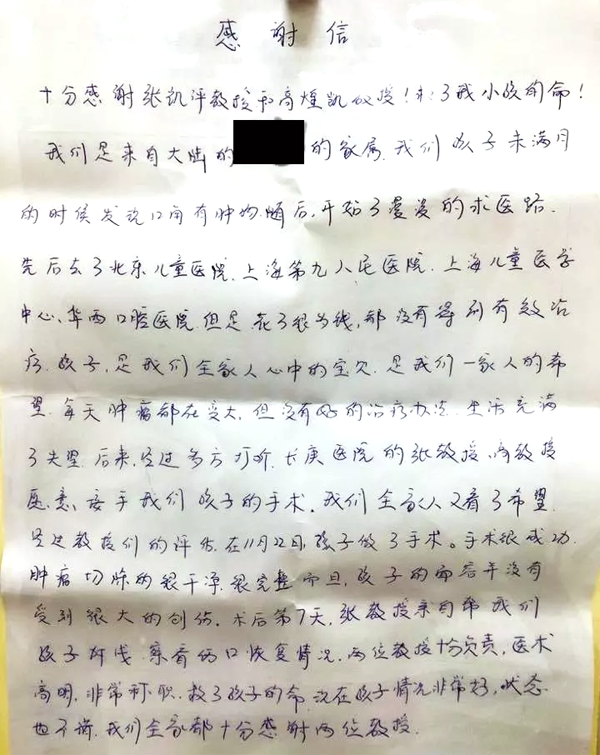 感谢信
十分感谢张凯评教授和高煃凯教授！救了我小孩的命！
我们是来自大陆的 的家属.我们孩子未满月
的时候发现口角有肿物.随后,开始了漫漫的求医路.
先后去了北京儿童医院.上海第九人民医院.上海儿童医学
中心.华西口腔医院.但是.花了很多钱,都没有得到有效治
疗.孩子,是我们全家人心中的宝贝.是我们一家人的希
望.每天肿瘤都在变大.但没有好的治疗办法.生活充满
了失望.后来,经过多方打听.长庚医院的张教授、高教授
愿意接手我们孩子的手术。我们全家人又看了希望.
经过教授们的评估.在11月22日,孩子做了手术。手术很成功.
肿瘤切除的很干净.很完整.而且,孩子的面容并没有
受到很大的创伤.术后第7天,张教授亲自帮我们
孩子拆线.察看伤口恢复情况.两位教授十分负责,医术
高明.非常称职.救了孩子的命.现在孩子情况非常好,状态
也不错.我们全家都十分感谢两位教授.